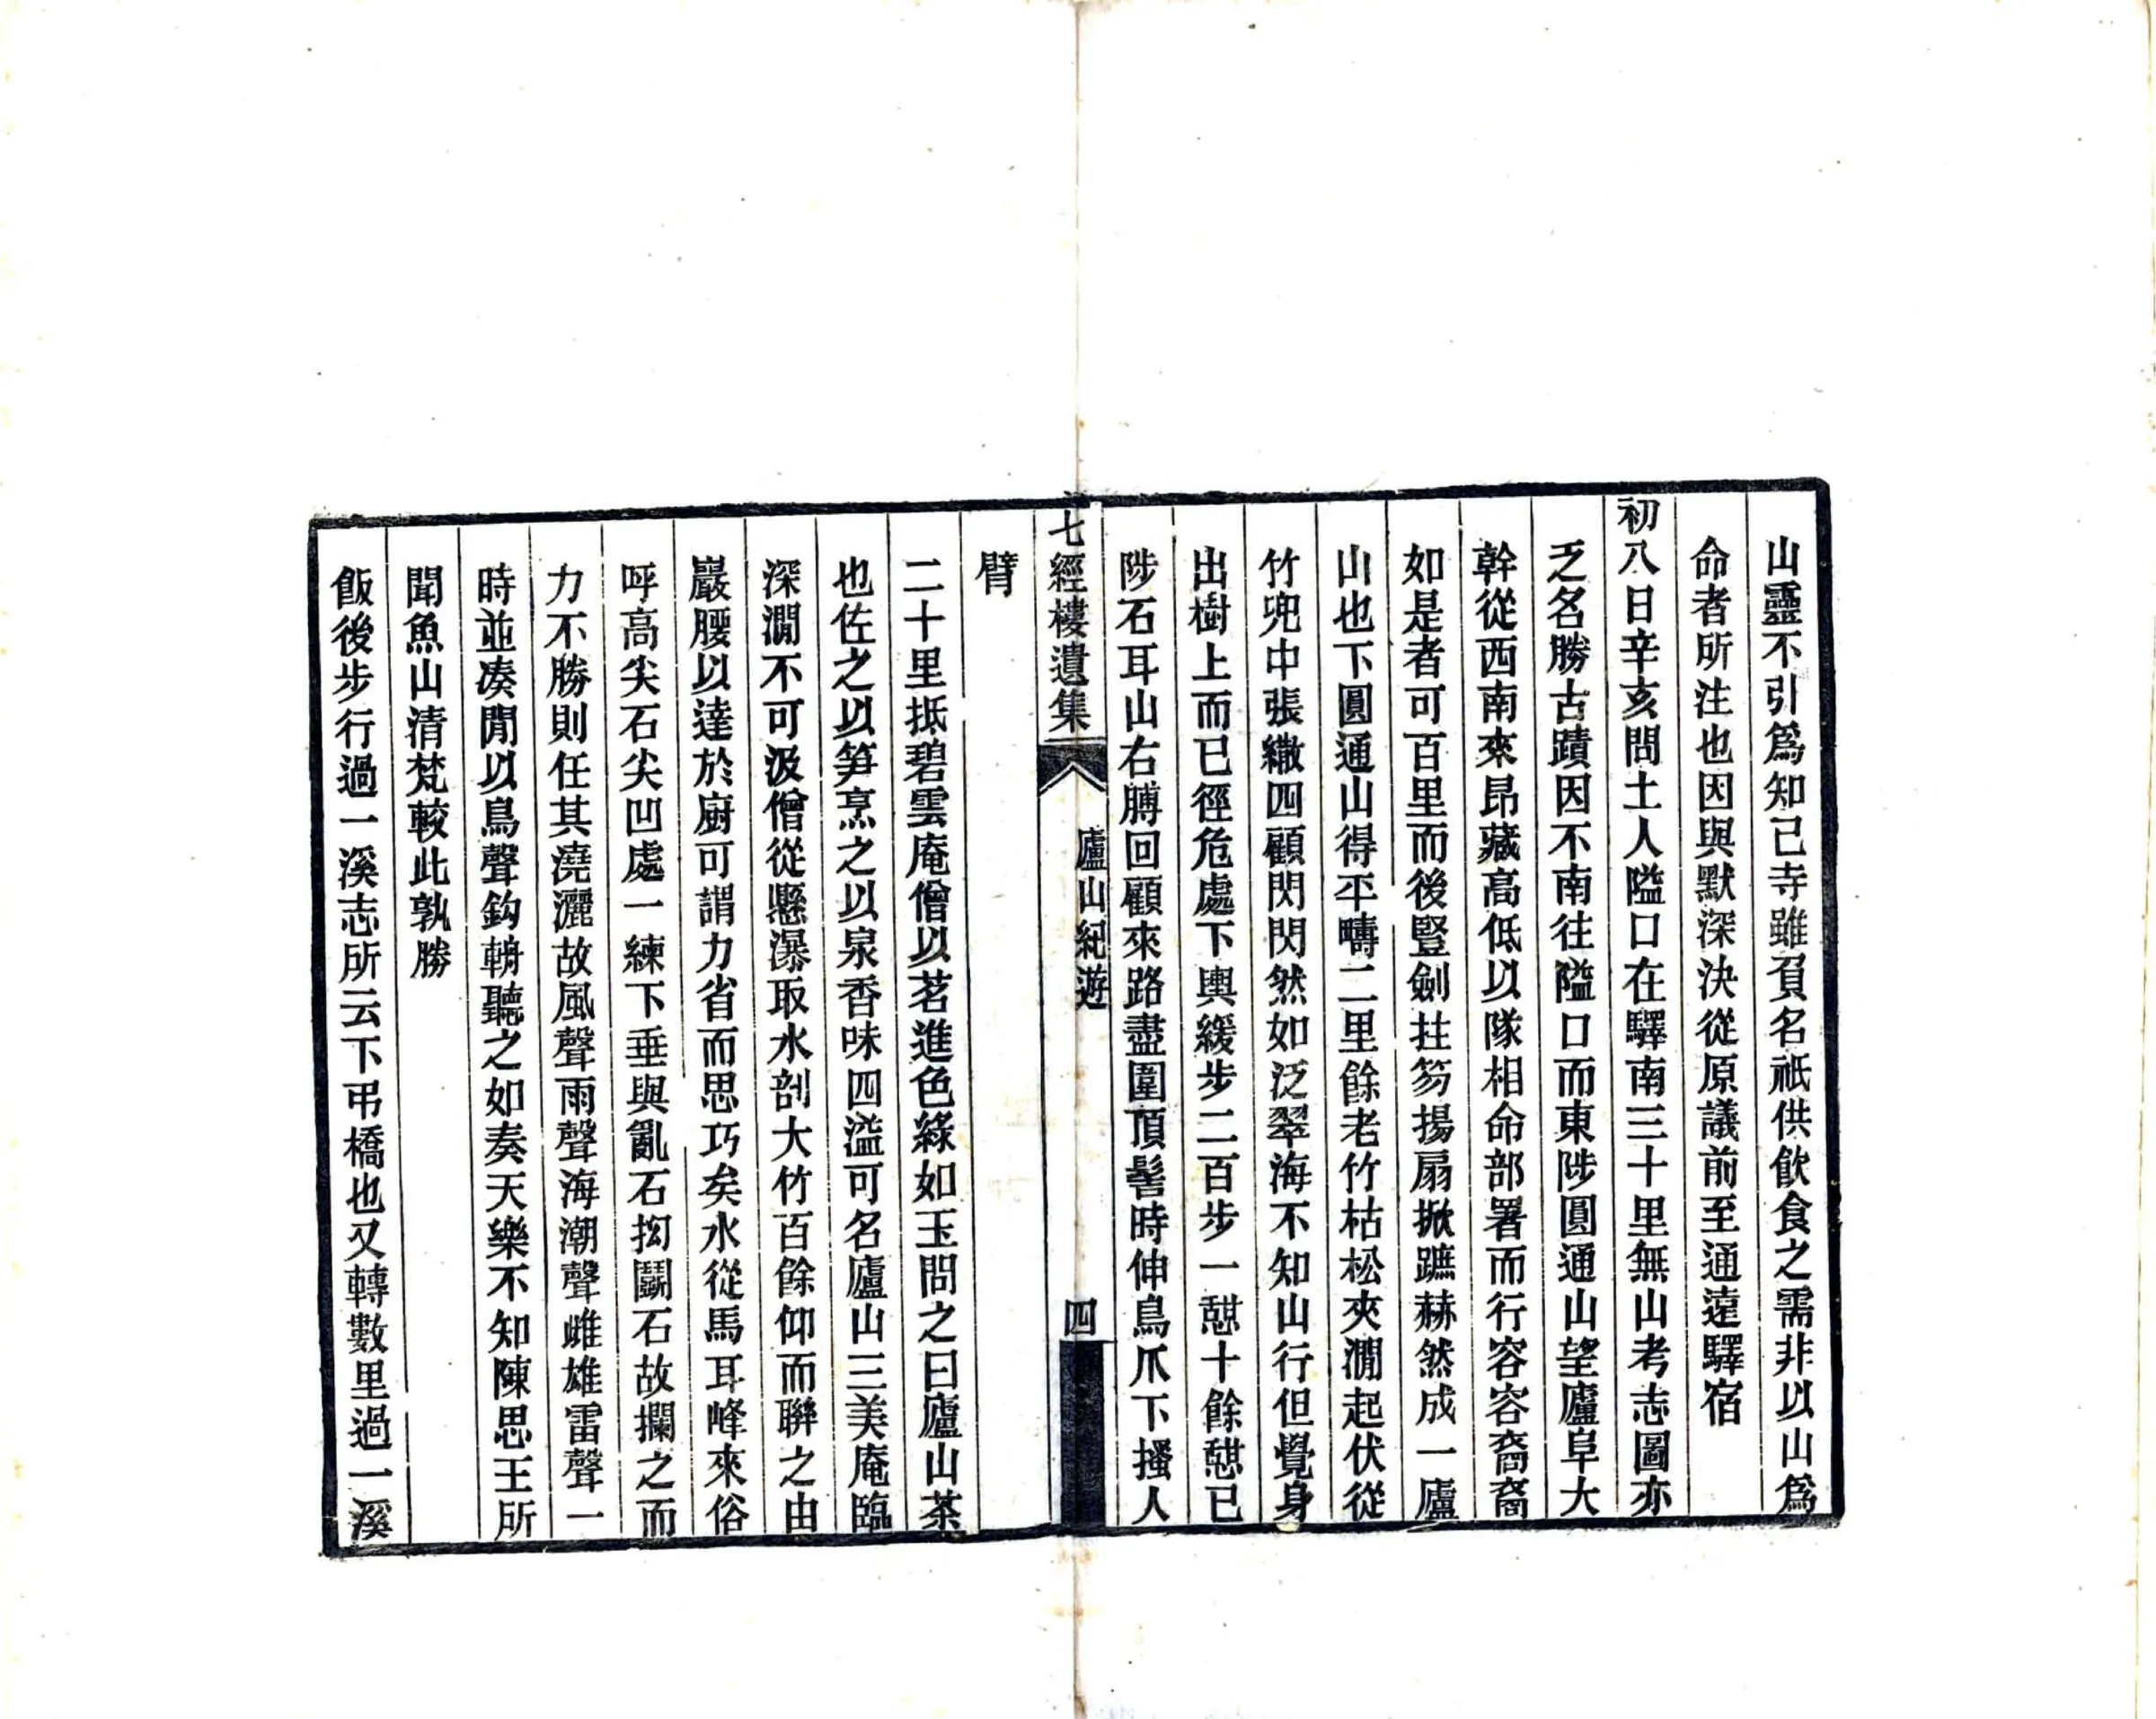 山靈不引爲知己寺雖負名祇供飲食之需非以山爲
命者所注也因與默深決從原議前至通遠驛宿
初八日辛亥問土人隘口在驛南三十里無山考志圖亦
乏名勝古蹟因不南往隘口而東陟圓通山望廬阜大
幹從西南來昂藏高低以隊相命部署而行容容裔裔
如是者可百里而後豎劍拄笏揚扇掀蹠赫然成一廬
山也下圓通山得平疇二里餘老竹枯松夾澗起伏從
竹兜中張繖四顧閃閃然如泛翠海不知山行但覺身
出樹上而已徑危處下輿緩步二百步一憇十餘憇已
陟石耳山右膊回顧來路盡圍頂髻時伸鳥爪下搔人
七經樓遺集
廬山紀遊
四
臂
二十里抵碧雲庵僧以茗進色綠如玉問之曰廬山茶
也佐之以笋烹之以泉香味四溢可名廬山三美庵臨
深澗不可汲僧從懸瀑取水剖大竹百餘仰而聯之由
巖腰以達於廚可謂力省而思巧矣水從馬耳峰來俗
呼高尖石尖凹處一練下垂與亂石拗鬬石故攔之而
力不勝則任其澆灑故風聲雨聲海潮聲雌雄雷聲一
時並凑閒以鳥聲鈎輈聽之如奏天樂不知陳思王所
聞魚山清梵較此孰勝
飯後步行過一溪志所云下弔橋也又轉數里過一溪